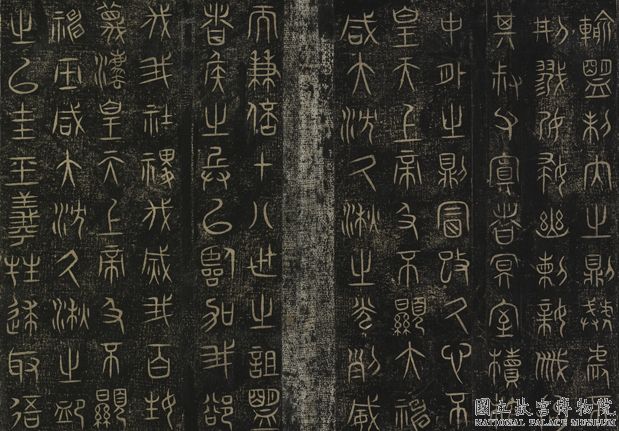 輸盟刺内之則虣虐
刑戮孕婦幽刺新戚
其叔父寘者冥室櫝棺
中外之則冒改久心不
皇天上帝及不顯大神
咸大沈久湫之光列威
而兼倍十八世之詛盟
者侯之兵以臨加我欲
伐我社稷伐滅我百姓
蔑灋皇天上帝及不顯
神巫咸大沈久湫之卹
之以圭玉羲牲逑取吾
國立故宮博物院
NATIONAL PALACE MUSEUM